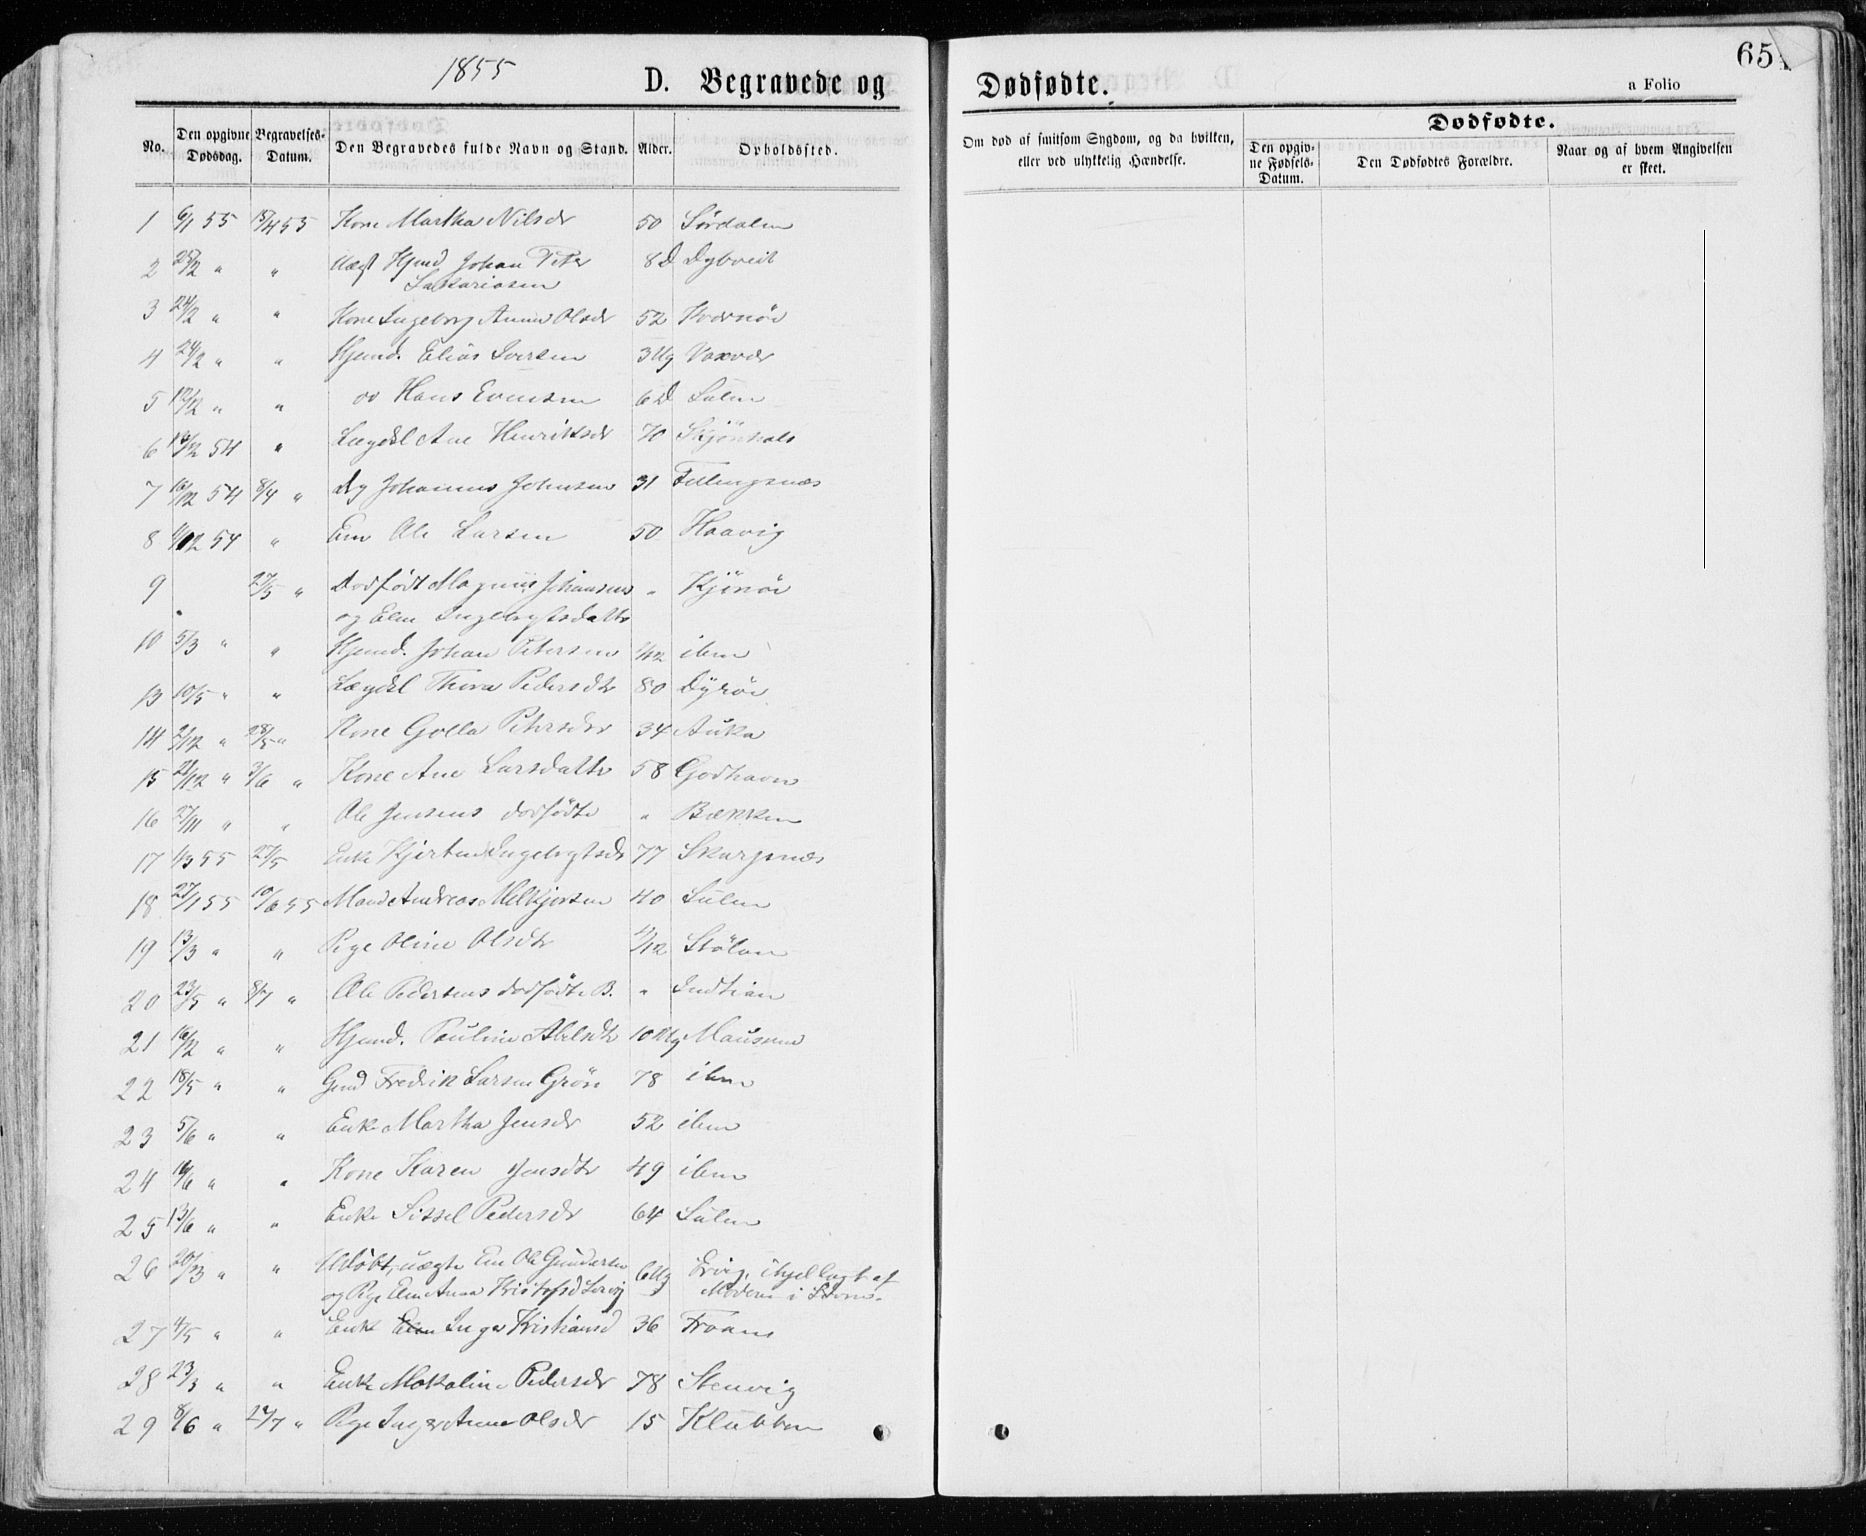 1855
D. Begravede og
Dødfødte.
651
a Folio
No.
Den opgivne Dødsdag.
Begravelses-Datum.
Den Begravedes fulde Navn og Stand.
Alder.
Opholdssted.
Om død af smitsom Sygdom, og da hvilken, eller ved ulykkelig Hændelse.
Dødfødte.
Den opgivne Fødsels-Datum.
Den Dødfødtes Forældre.
Naar og af hvem Angivelsen er skeet.
1 6/1 55 15/4 55 Kone Martha Nilsdr 50 Sördalen
2 25/2 " " Uægt Hjmd Johan Peter 8 D Dybveit
Sakariasen
3 24/2 " " Kone Ingeborg Anna Olsdr 52 Kvernöe
4 24/2 " " Hjemd. Elias Iversen 3 Ug Vaxvær
5 12/2 " " do Hans Evensen 6 D Sulen
6 13/12 54 " Lægdsl Ane Henriksdr 70 Skjönhals
7 16/12 54 8/4 " Dg Johannes Johnsen 31 Fillingsnæs
8 1/12 54 " Em Ole Larsen 50 Haavig
9 27/5 " Dodfödt Magnus Johansens " Kjönöe
og Elen Ingebrgtsdatter
10 5/3 " " Hjemd. Johan Petersen 1/12 ibm
13 10/5 " " Lægdsl Thora Pedersdtr 80 Dyröe
14 2/12 " 28/5 " Kone Golla Petersdr 34 Auka
15 21/12 " 3/6 " Kone Ane Larsdattr 58 Godhavn
16 27/11 " " Ole Jensens dodfödte " Bækken
17 1/3 55 27/5 Enke Kjersten Ingebrgtsdr 77 Skargsnæs
18 27/1 55 10/6 55 Mand Andreas Melkjorsen 40 Sulen
19 13/3 " " Pige Oline Olsdtr /12 Stölan
20 23/5 " 8/7 " Ole Pedersens dodfödte B. " Indtian
21 16/2 " " Hjemd. Pauline Abelsdtr 10 Ug Mausund
22 18/5 " " Gmd Fredrik Larsen Grön 78 ibm
23 5/6 " " Enke Martha Jensdr 52 ibm
24 10/6 " " Kone Karen Jensdtr 49 ibm
25 13/6 " " Enke Sissel Pedersdr 64 Sulen
26 20/3 " " Udöbt, uægte Em Ole Gundersen 6 Ug ihjellagt af
og Pige Elen Anna Kristofsd Moderen i
27 4/5 " " Enke Elen Inger Kristiansd 36 Froans
28 23/3 " " Enke Makaline Pedersdr 78 Stenvig
29 8/6 " 27/7 " Pige Inger Anne Olsdr 15 Klubben